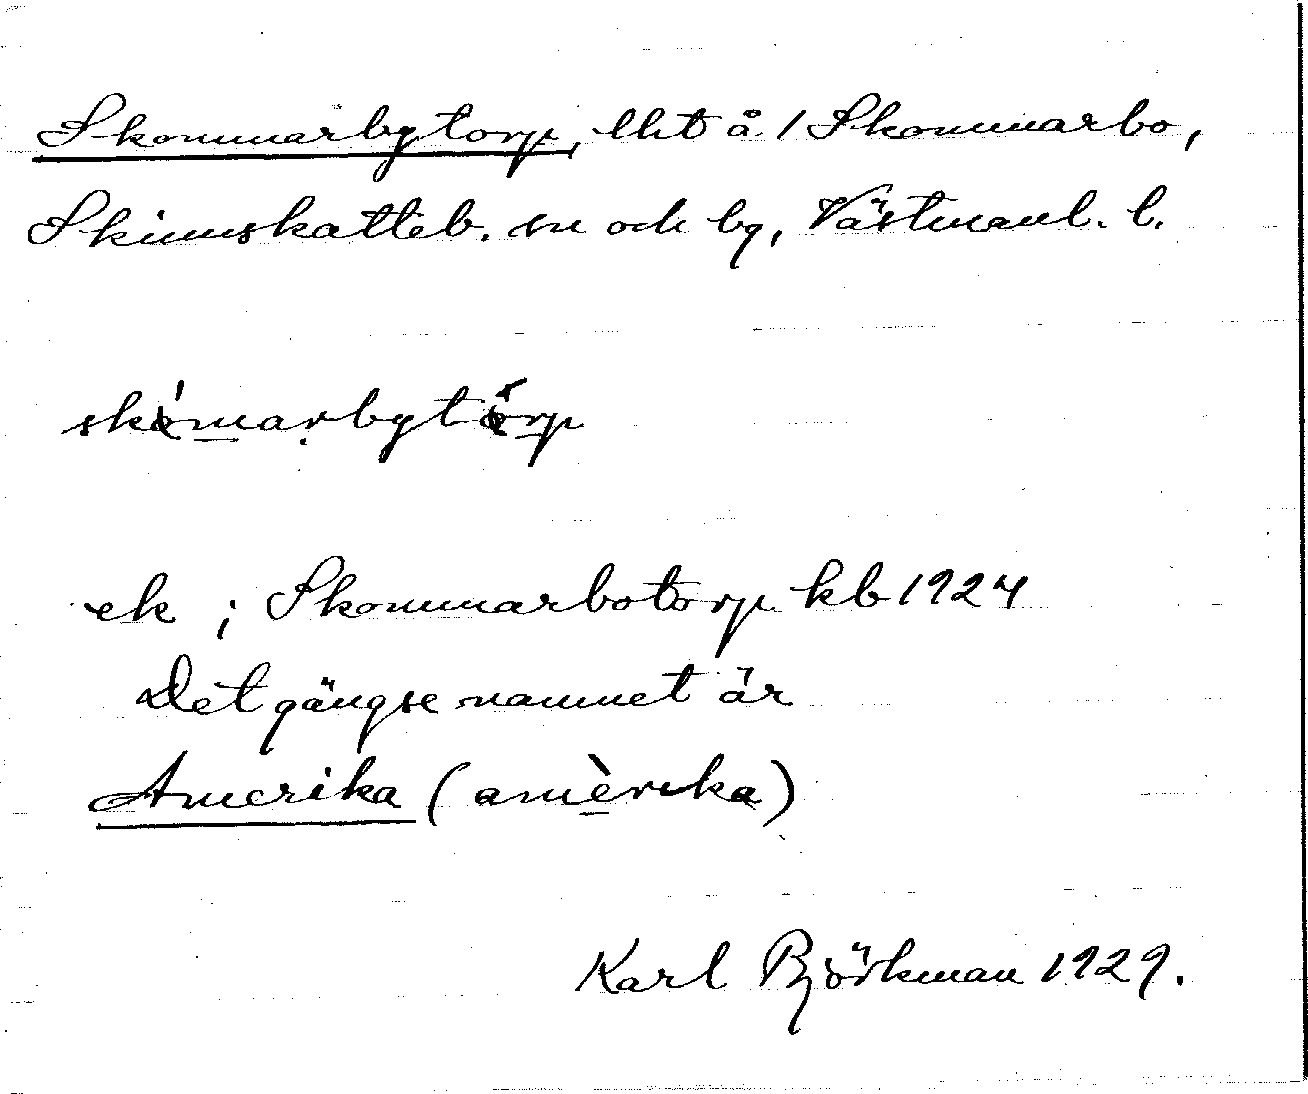 Skommarbytorp, lht å 1 Skommarbo,
Skinnskatteb. sn och bg, Västmanl. l.
skómarbytòrp
ek ; Skommarbotorp kb 1924
Det gängse namnet är
Amerika (amèrika)
Karl Björkman 1929.